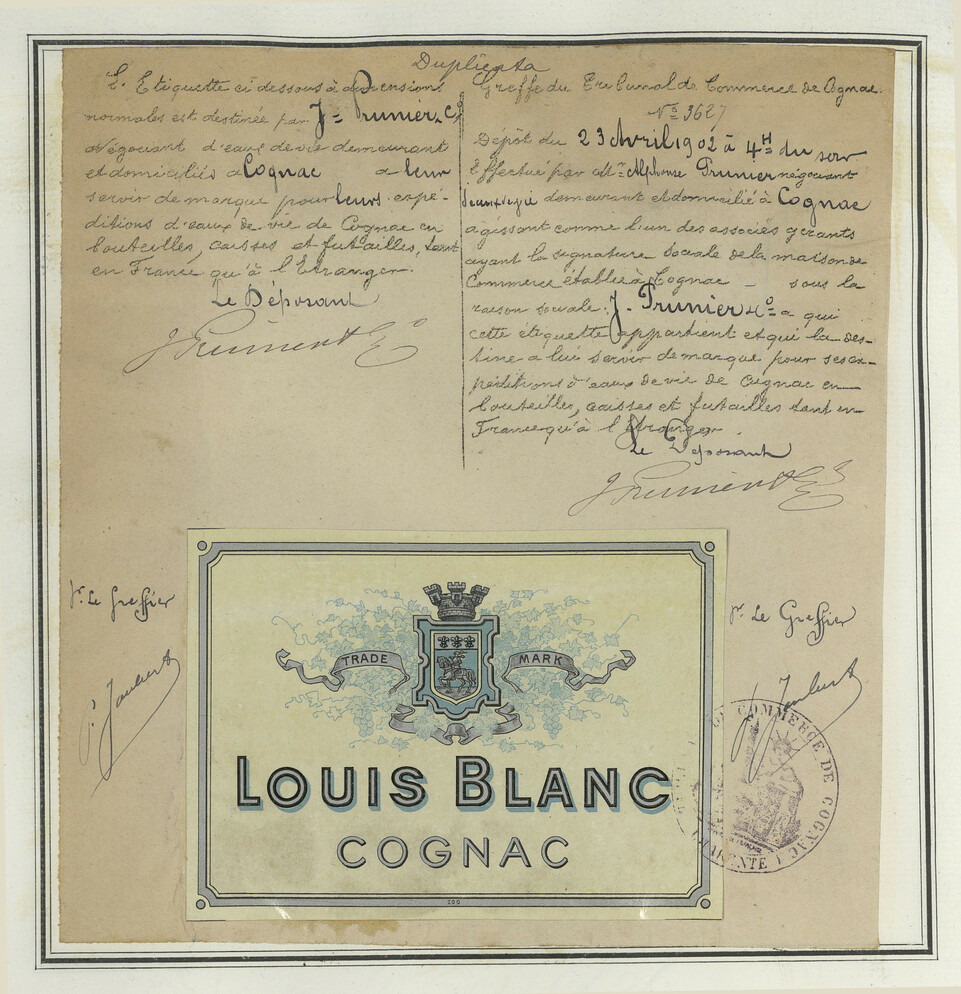 Duplicata
L'Etiquette ci dessous à dimensions
normales est destinée par J. Prunier & Co
Négociant d'eaux de vie demeurant
et domiciliés à Cognac à leur
servir de marque pour leurs expé-
ditions d'eaux de vie de Cognac en
bouteilles, caisses et futailles, tant
en France qu'à l'Etranger.
Le Déposant
J Prunier & Co
Greffe du Tribunal de Commerce de Cognac.
No 3627
Dépôt du 23 Avril 1902 à 4H du soir
Effectué par Mr Alphonse Prunier négociant
d'eaux de vie demeurant et domicilié à Cognac
agissant comme l'un des associés gérants
ayant la signature sociale de la maison de
Commerce établie à Cognac - sous la
raison sociale: J. Prunier & Co a qui
cette étiquette appartient et qui la des-
tine à lui servir de marque pour ses ex-
péditions d'eaux de vie de Cognac en
bouteilles, caisses et futailles tant en
France qu'à l'Etranger
Le Déposant
J Prunier & Co
pr. Le Greffier
pr. Le Greffier
TRADE MARK
LOUIS BLANC
COGNAC
200
COMMERCE DE COGNAC
CHARENTE